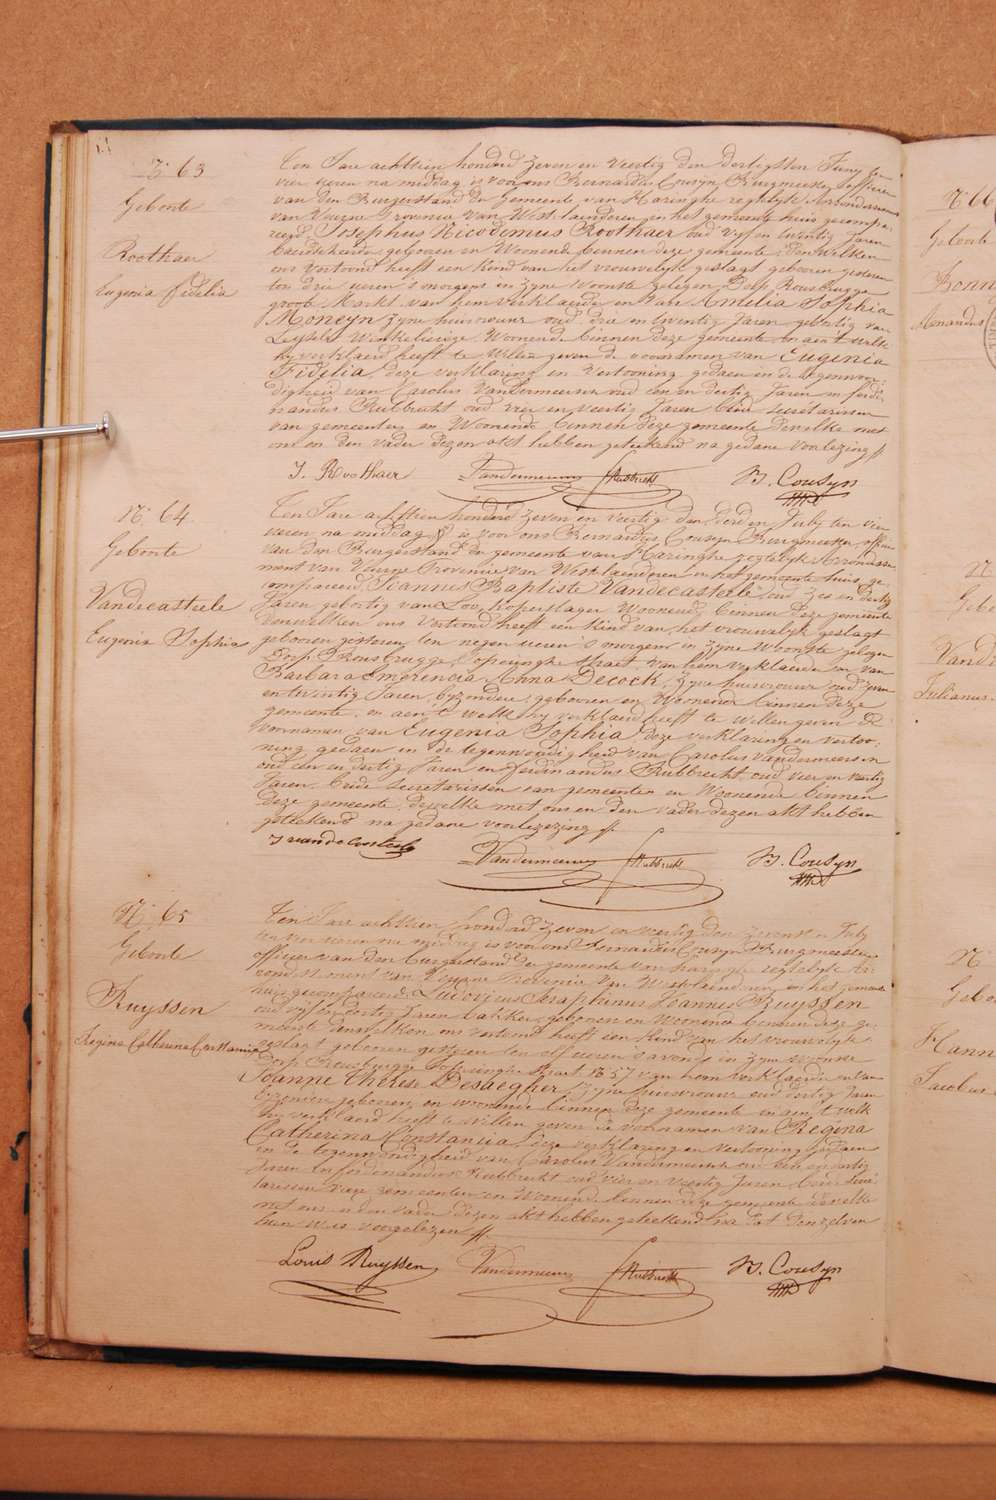 N.º 63
Geboorte
Roothaer
Eugenia Fidelia
Ten Jare achttien honderd zeven en veertig den dertigsten Juny te
vier uren na middag is voor ons Bernardus Cousyn Burgmeester officier
van den Burgerstand de Gemeente van Haringhe regtelyke Arrondissement
van Veurne Provincie van West-Vlaenderen in het gemeente huis gecompa-
reerd Josephus Nicodemus Roothaer oud vyf en twintig Jaren
geboren en Woonende binnen deze gemeente Den welken
ons vertoond heeft een kind van het vrouwelyk geslagt geboren gisteren
ten drie uren s'morgens in zyne Woonste gelegen Dorp Rousbrugge
groote Markt van hem verklaerder en van Amelia Sophia
Moneyn zyne huisvrouw oud drie en twintig Jaren geboortig van
Leysele Winkelierige Woonende binnen deze gemeente en aen 't welk
hy verklaerd heeft te willen geven de voornamen van Eugenia
Fidelia, deze verklaring en vertooning gedaen in de tegenwoor-
digheid van Carolus Vandermeersch oud een en dertig Jaren en ferdi-
nandus Rubbrecht oud vier en veertig Jaren beide Secretarissen
van gemeenten en Woonende binnen deze gemeente dewelke met
ons en den vader dezen akt hebben geteekend na gedane voorlezing
J. Roothaer Vandermeersch f Rubbrecht B. Cousyn
N.º 64
Geboorte
Vandecasteele
Eugenia Sophia
Ten Jare achttien honderd zeven en veertig den derden July ten vier
uren na middag is voor ons Bernardus Cousyn Burgmeester officier
van den Burgerstand de gemeente van Haringhe regtelyke Arrondisse-
ment van Veurne Provincie van West-Vlaenderen in het gemeente huis ge-
compareerd Joannes Baptiste Vandecasteele oud zes en dertig
Jaren geboortig van Loo, koperslager Woonende binnen deze gemeente
Denwelken ons vertoond heeft een kind van het vrouwelyk geslagt
gebooren gisteren ten negen uren s'morgens in zyne Woonste gelegen
Dorp Rousbrugge Poperinghe straet, van hem verklaerder en van
Barbara Emerencia Anna Decock, zyne huisvrouwe oud zeven
en twintig Jaren, byzondere, gebooren en Woonende binnen deze
gemeente, en aen 't welk hy verklaerd heeft te willen geven de
voornamen van Eugenia Sophia, deze verklaring en vertoo-
ning gedaen in de tegenwoordigheid van Carolus Vandermeersch
oud een en dertig Jaren en ferdinandus Rubbrecht oud vier en veertig
Jaren, beide secretarissen van gemeenten en Woonende binnen
deze gemeente, dewelke met ons en den vader dezen akt hebben
geteekend na gedane voorlezing
J vandecasteele Vandermeersch f Rubbrecht B. Cousyn
N.º 65
Geboorte
Ruyssen
Regina Catherina Constancia
Ten Jare achttien honderd zeven en veertig den zevensten July
ten vier uren na middag is voor ons Bernardus Cousyn Burgmeester
officier van den Burgerstand de gemeente van haringhe regtelyke Ar-
rondissement van Veurne Provincie van West-Vlaenderen in het gemeente
huis gecompareerd Ludovicus Seraphinus Joannes Ruyssen
oud vyf en dertig Jaren bakker, gebooren en Woonende binnen deze ge-
meente denwelken ons vertoond heeft een kind van het vrouwelyk
geslagt gebooren gisteren ten elf uren s'avonds in zyne woonste
Dorp Rousbrugge Poperinghe straet N 57 van hem verklaerder en van
Joanne Therese Desaegher zyne huisvrouw oud dertig Jaren
gebooren, en woonende binnen deze gemeente en aen 't welk
hy verklaerd heeft te willen geven de voornamen van Regina
Catherina Constancia, deze verklaring en vertooning gedaen
in de tegenwoordigheid van Carolus Vandermeersch oud een en dertig
Jaren en ferdinandus Rubbrecht oud vier en veertig Jaren, beide Secre-
tarissen van gemeenten en Woonende binnen deze gemeente dewelke
met ons en den vader dezen akt hebben geteekend na dat denzelven
hun was voorgelezen
Louis Ruyssen Vandermeersch f Rubbrecht B. Cousyn
N.º 66